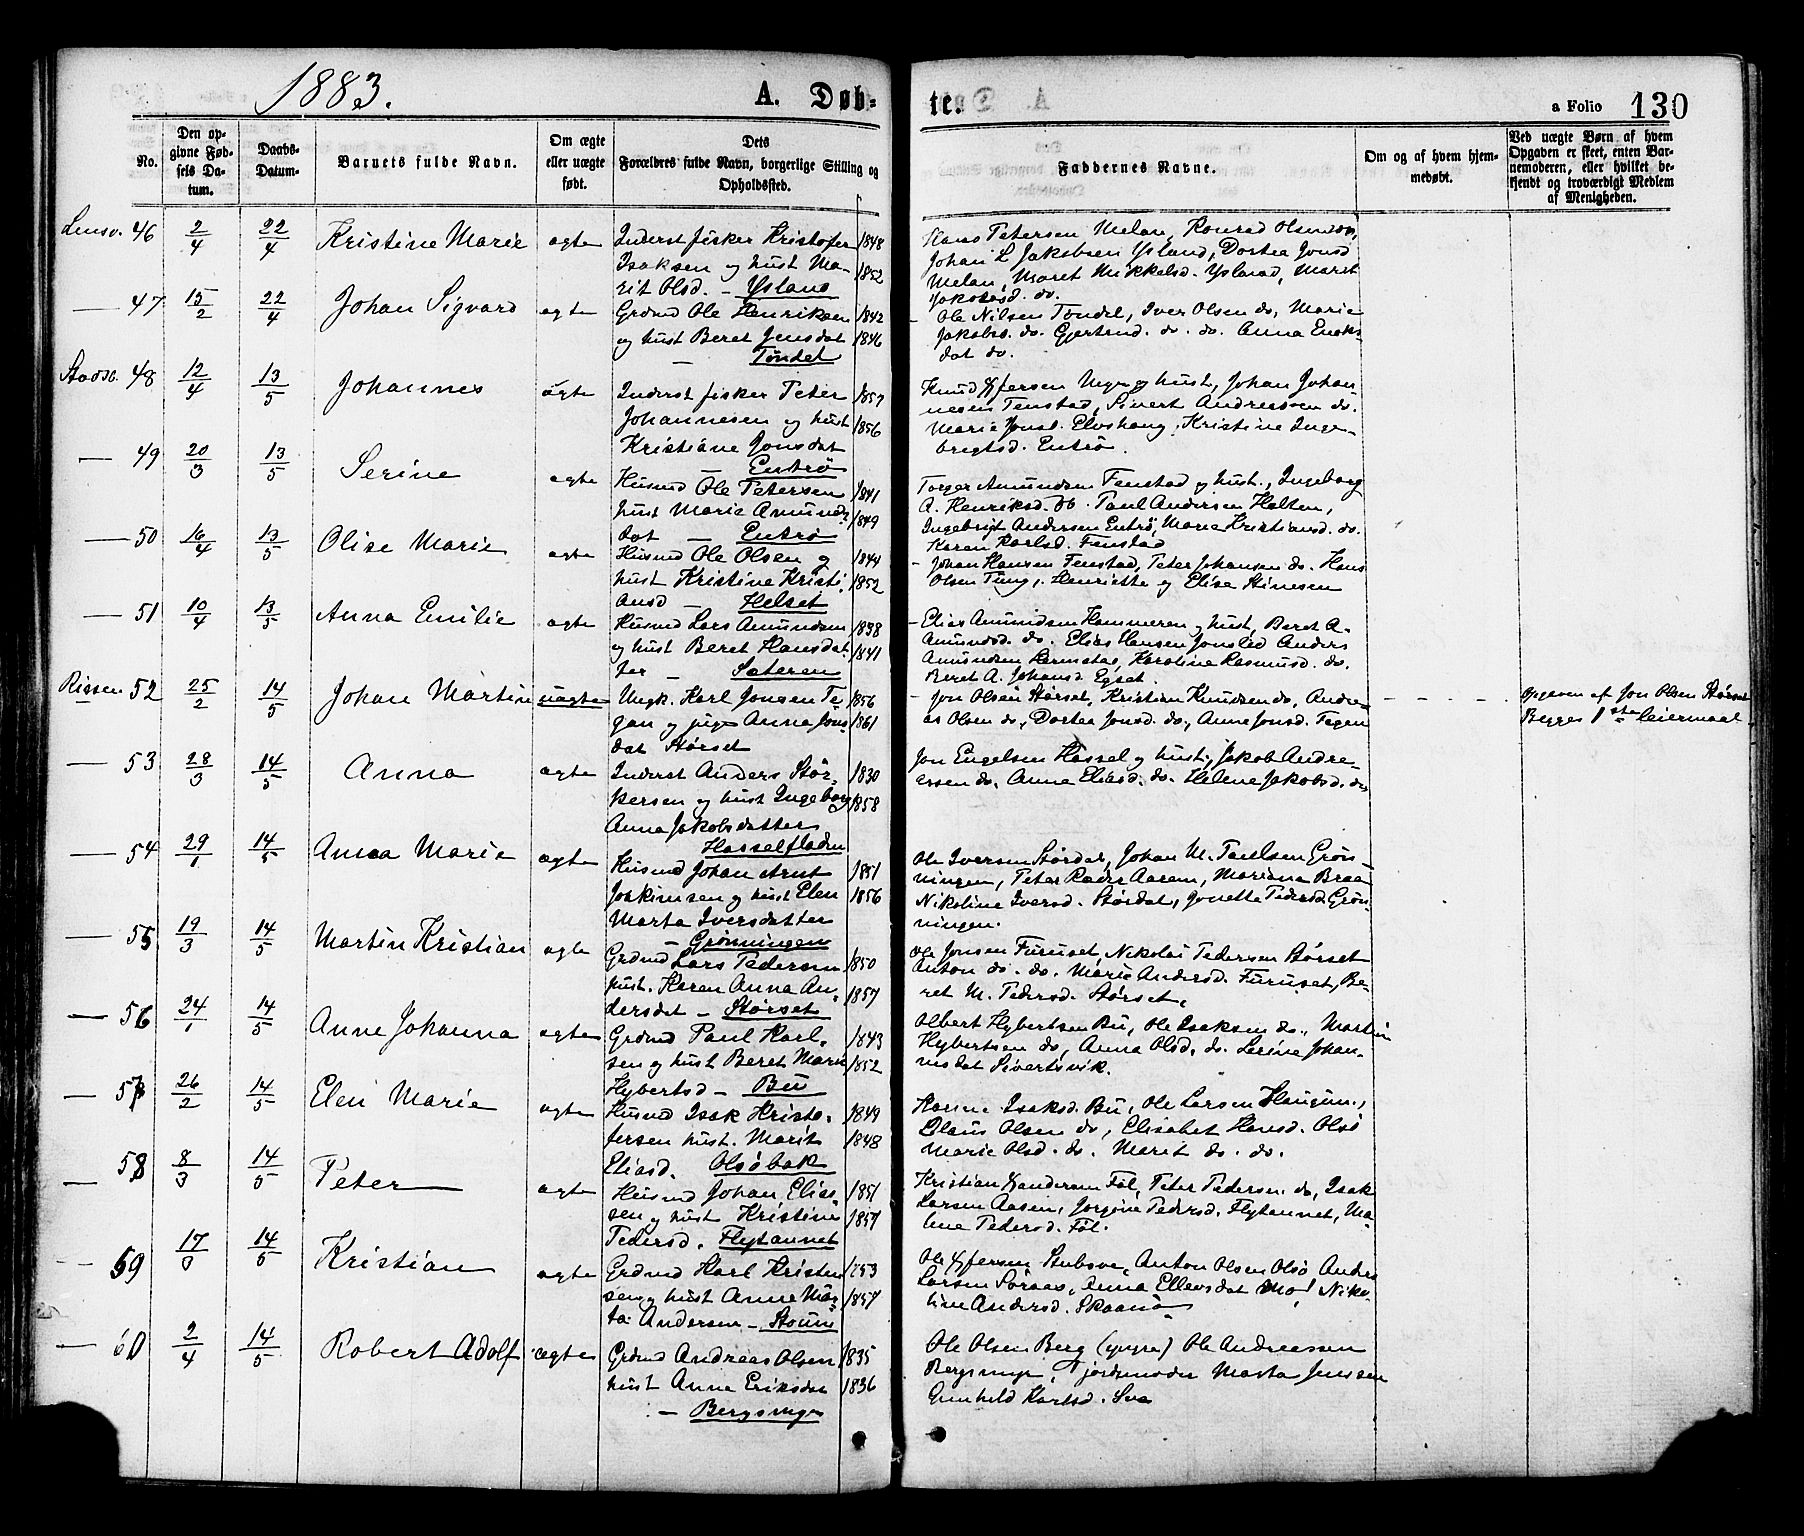 1883.
A. Døb-
te.
a Folio 130
No.
Den op-
givne Fød-
sels Da-
tum.
Daabs-
Datum.
Barnets fulde Navn.
Om ægte
eller uægte
født.
Dets
Forældres fulde Navn, borgerlige Stilling og
Opholdssted.
Faddernes Navne.
Om og af hvem hjem-
medøbt.
Ved uægte Børn af hvem
Opgaven er skeet, enten Bar-
nemoderen, eller hvilket be-
kjendt og troværdigt Medlem
af Menigheden.
Lensv. 46 2/4 22/4 Kristine Marie ægte
Inderst fisker Kristofer 1848
Isaksen og hust Ma- 1852
rit Olsd. - Ysland
Hans Petersen Melan, Konrad Olsen do,
Johan L Jakobsen Ysland, Dortea Jonsd
Melan, Maret Mikkelsd. Ysland, Maret
Jakobsd. do.
— 47 15/2 22/4 Johan Sigvard ægte
Grdmd Ole Henriksen 1842
og hust Beret Jensdat 1846
— Tøndel
- Ole Nilsen Tøndel, Iver Olsen do, Marie
Jakobsd. do. Gjertrud. do. do. Anna Enoks-
dat do.
Stadsb. 48 12/4 13/5 Johannes ægte
Inderst fisker Peter 1857
Johannesen og hust 1856
Kristiane Jonsdat
— Entrø
Johan Johan-
nesen Fenstad, Sivert Andreassen do.
Marie Jonsd. Elvshaug, Kristine Inge-
brigtsd. Entrø.
— 49 20/3 13/5 Serine ægte
Husmd Ole Petersen 1841
hust Marie Amunds- 1849
dat — Entrø
Torger Amundsen Fenstad og hust., Ingeborg
A. Henriksd. do. Paul Andersen Holten,
Ingebrigt Andersen Entrø, Marie Kristiansd. do.
Karen Karlsd. Fenstad
— 50 16/4 13/5 Olise Marie ægte
Husmd Ole Olsen og 1844
hust Kristine Kristi- 1852
ansd — Helset
- Johan Hansen Fenstad, Peter Johansen do. Hans
Olsen Tung, Henriette og Elisa Stinesen
— 51 10/4 13/5 Anna Emilie ægte
Husmd Lars Amundsen 1838
og hust Beret Hansdat- 1841
ter — Sæteren
- Elias Amundsen Hammeren og hust, Beret A.
Amundsd. do. Elias Hansen Jonslid Anders
Amundsen Lermstad, Karoline Rasmusd. do.
Beret A. Johansd Egset.
Rissen 52 25/2 14/5 Johan Martin uægte
Ungk. Karl Jonsen Te- 1856
gan og pige Anna Jons- 1861
dat Størset
- Jon Olsen Størset, Kristian Knudsen do, Andre-
as Olsen do, Dortea Jonsd. do, Anne Jonsd. Tegen
Opgaven af Jon Olsen Størset
Begges 1ste Leiermaal
— 53 28/3 14/5 Anna ægte
Inderst Anders Stør- 1830
kersen og hust Ingeborg 1858
Anna Jakobsdatter
Hasselfladen
Jon Engelsen Hassel og hust, Jakob Andre-
assen do, Anne Eliasd. do. Helene Jakobsd. do
— 54 29/1 14/5 Anna Marie ægte
Husmd Johan Arnt 1851
Joakimsen og hust Elen 1856
Marta Iversdatter
— Grønningen
Ole Iversen Størdal, Johan M. Paulsen Grøn-
ningen, Peter Aasen, Mariane Braa
Nikoline Iversd. Størdal, Jonetta Pedersd Grøn-
ningen.
— 55 19/3 14/5 Martin Kristian ægte
Grdmd Lars Pedersen 1850
hust. Karen Anna An- 1857
dersdat — Størset
Ole Jonsen Furuset, Nikolai Pedersen Størset
Anton do. do. Marie Andersd. Furuset, Be-
ret M. Pedersd. Størset.
— 56 24/1 14/5 Anne Johanna ægte
Grdmd Paul Karl- 1843
sen og hust Beret Marie 1852
Hybertsd — Bu
Albert Hybertsen Bu, Ole Isaksen do., Martin
Hybertsen do, Anna Olsd. do. Serine Johan-
nesdat Sivertsvik.
— 57 26/2 14/5 Elen Marie ægte
Husmd Isak Kristo- 1849
fersen hust. Marit 1848
Eliasd. Olsøbak
Karine Isaksd. Bu, Ole Larsen Haugum,
Olaus Olsen do, Elisabet Hansd. Olsø
Marie Olsd. do. Marit do. do.
— 58 8/3 14/5 Peter ægte
Husmd Johan Elias- 1851
sen og hust Kristine 1857
Pedersd. Flytannet
Kristian Føl, Peter Pedersen do, Isak
Larsen Aasen, Jørgine Pedersd. Flytannet, Ma-
line Pedersd. Føl.
— 59 17/3 14/5 Kristian ægte
Grdmd Karl Kristen- 1853
sen og hust Anne Mar- 1857
ta Andersen — Stoum
Stubsve, Anton Olsen Olsø Anders
Larsen Søraas, Anna Ellevsdat Mo, Niko-
line Andersd. Skaanø
— 60 2/4 14/5 Robert Adolf ægte
Grdmd Andreas Olsen 1835
hust Anne Eriksdat 1836
— Bergsmyr
Ole Olsen Berg (yngre) Ole Andreassen
Bergsmyr, Fjordemoder Marta Jensen
Gunhild Karlsd. Sve